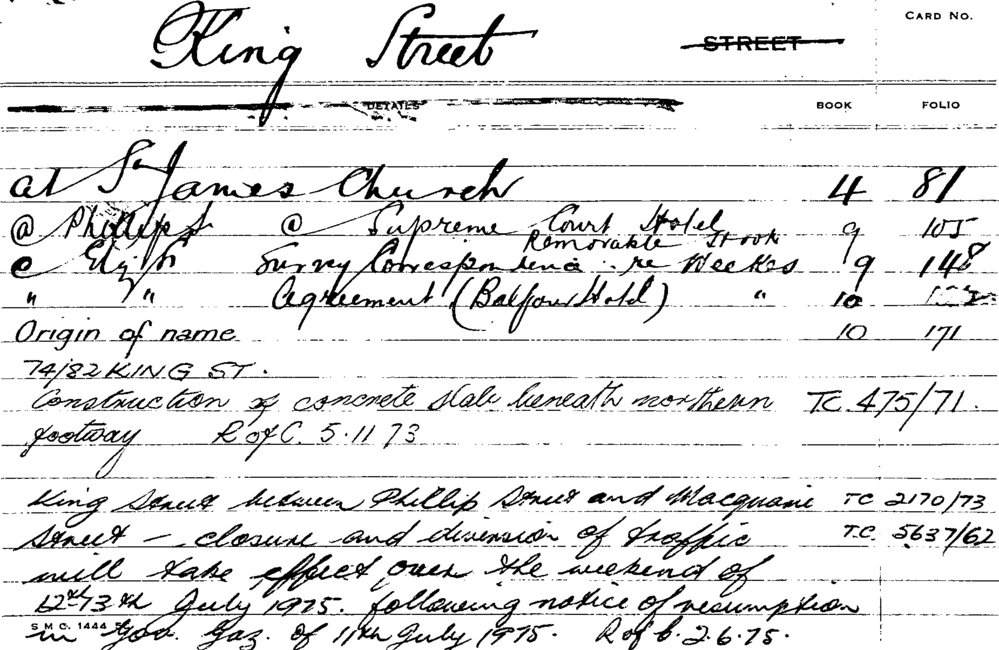 CARD No.
King Street STREET
DETAILS BOOK FOLIO
at St James Church 4 81
@ Phillip St @ Supreme Court Hotel 9 105
Removable Hook
@ Eliz St Survey Correspondence re Weekes 9 148
" " Agreement (Balfour Hotel) " 10
Origin of name 10 171
74/82 KING ST.
Construction of concrete slab beneath northern TC. 475/71.
footway R of C. 5.11 73
King Street between Phillip Street and Macquarie TC 2170/73
Street – closure and diversion of traffic T.C. 5637/62
will take effect over the weekend of
12th 13th July 1975. following notice of resumption
S M C. 1444
in Gov. Gaz. of 11th July 1975. R of C. 2.6.75.